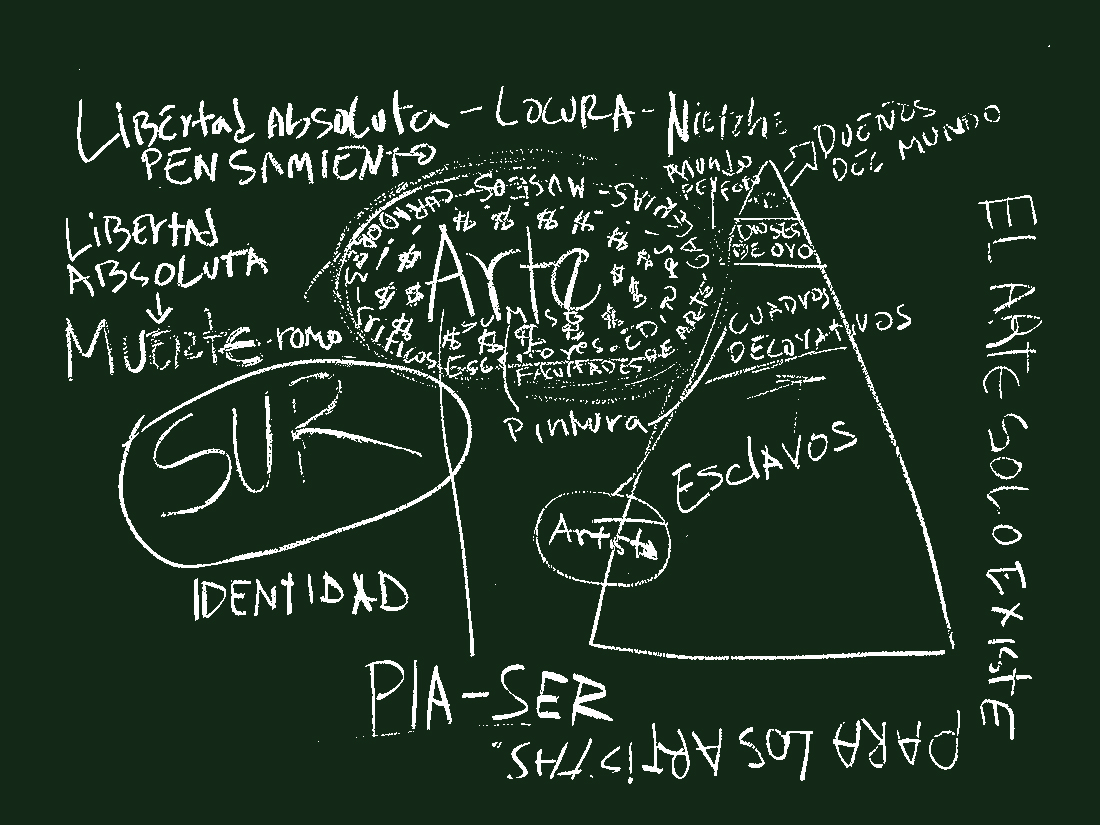 LIBERTAD ABSOLUTA - LOCURA - Nietzhe
PENSAMIENTO
DUEÑOS
DEL MUNDO
MUNDO
LIBERTAD
ABSOLUTA
MUERTE-romo
GALERIAS-MUSEOS-CURADORES-
Arte
$ $ $ $ $ $ $ $ $ $ $
CRITICOS
FACULTADES DE ARTE
DIOSES
DE ORO
CUADROS
DECORATIVOS
Pintura
ESCLAVOS
Artista
SUR
IDENTIDAD
PIA-SER
EL ARTE SOLO EXISTE
PARA LOS ARTISTAS."